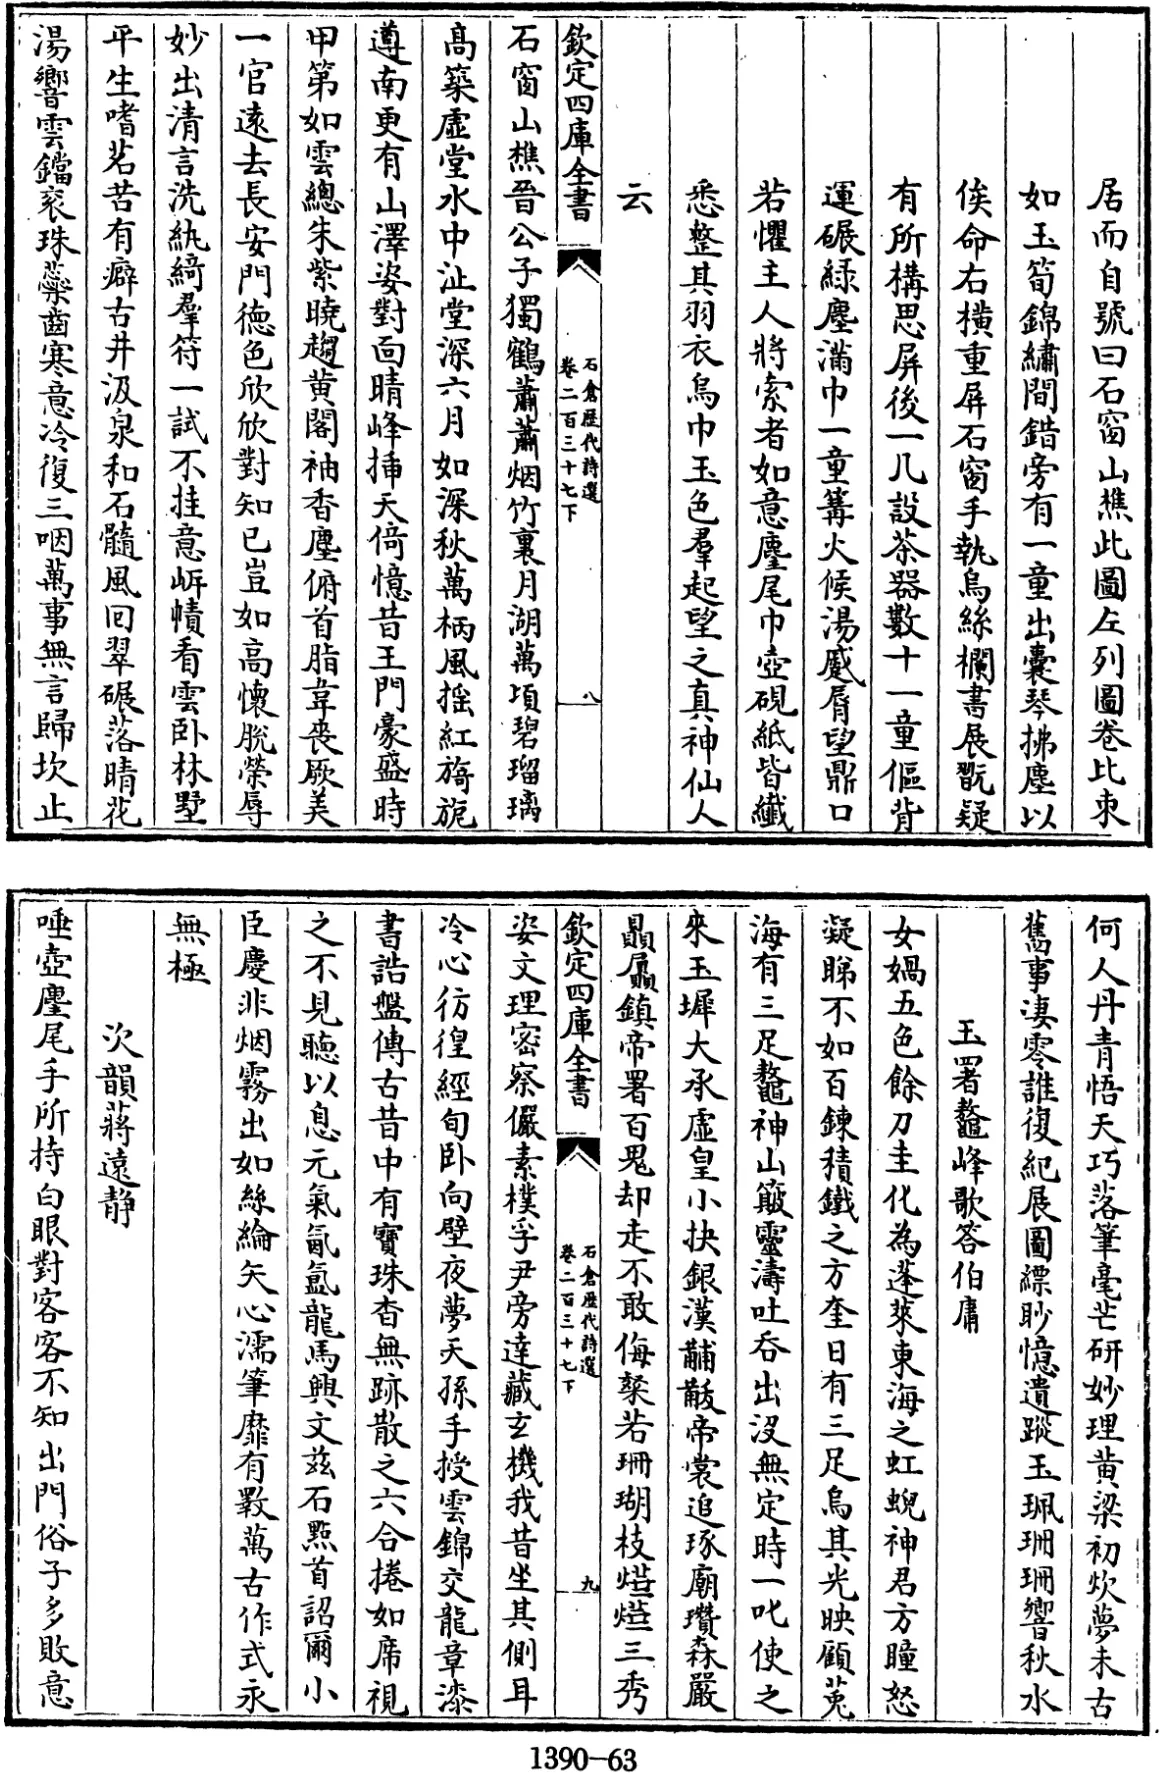 居而自號曰石窗山樵此圖左列圖卷比束
如玉筍錦繡間錯旁有一童出囊琴拂塵以
俟命右橫重屏石窗手執烏絲欄書展翫疑
有所構思屏後一几設茶器數十一童傴背
運碾緑塵滿巾一童篝火候湯蹙脣望鼎口
若懼主人將索者如意麈尾巾壺硯紙皆纎
悉整其羽衣烏巾玉色羣起望之真神仙人
云
欽定四庫全書
石倉歷代詩選
卷二百三十七下
八
石窗山樵晉公子獨鶴蕭蕭烟竹裏月湖萬頃碧瑠璃
高築虛堂水中沚堂深六月如深秋萬柄風摇紅旖旎
遵南更有山澤姿對面晴峰揷天倚憶昔王門豪盛時
甲第如雲總朱紫曉趨黄閣袖香塵俯首脂韋喪厥美
一官逺去長安門德色欣欣對知已豈如高懷脱榮辱
妙出清言洗紈綺羣符一試不挂意岸幘看雲卧林墅
平生嗜茗苦有癖古井汲泉和石髓風回翠碾落晴花
湯響雲鐺衮珠蘂齒寒意冷復三咽萬事無言歸坎止
何人丹青悟天巧落筆毫芒研妙理黄粱初炊夢未古
舊事凄零誰復紀展圖縹眇憶遺蹤玉珮珊珊響秋水
玉署鼇峰歌答伯庸
女媧五色餘刀圭化為蓬萊東海之虹蜺神君方瞳怒
凝睇不如百鍊積鐵之方奎日有三足烏其光映顧兎
海有三足鼇神山簸靈濤吐呑出沒無定時一叱使之
來玉墀大承虛皇小抉銀漢黼黻帝裳追琢廟瓚森嚴
贔屭鎮帝署百鬼却走不敢侮粲若珊瑚枝熖熖三秀
欽定四庫全書
石倉歷代詩選
卷二百三十七下
九
姿文理宻察儼素樸孚尹旁達藏玄機我昔坐其側耳
冷心彷徨經旬卧向壁夜夢天孫手授雲錦交龍章漆
書誥盤傳古昔中有寳珠杳無跡散之六合捲如席視
之不見聽以息元氣氤氲龍馬興文兹石㸃首詔爾小
臣慶非烟霧出如絲綸矢心濡筆靡有斁萬古作式永
無極
次韻蔣逺静
唾壺麈尾手所持白眼對客客不知出門俗子多敗意
1390—63